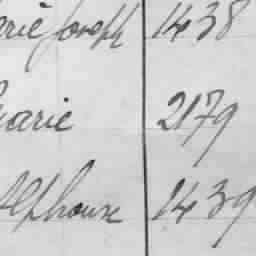 arie Joseph 1438
Marie 2179
Alphonse 1439